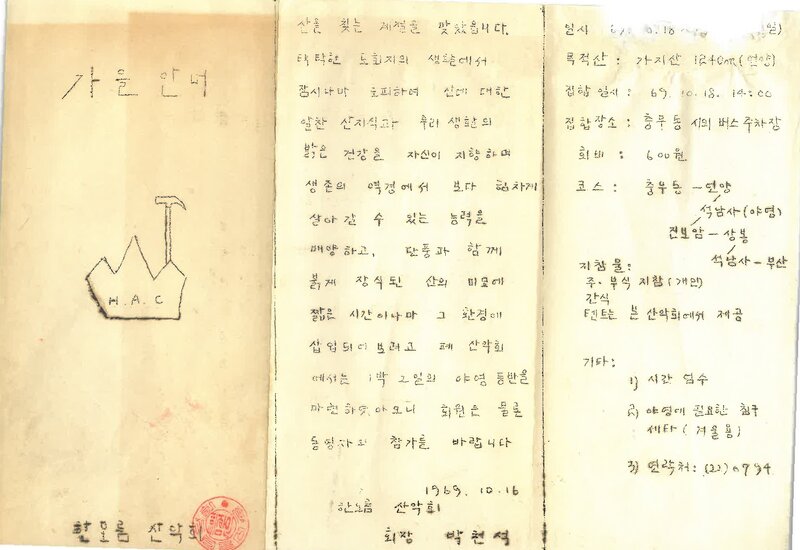 가을 안내
H.A.C
한모름 산악회
산을 찾는 계절을 맞았읍니다.
탁탁한 도회지의 생활에서
잠시나마 도피하여 산에 대한
알찬 산지식과 우리 생활의
밝은 건강을 자신이 지향하며
생존의 역경에서 보다 힘차게
살아갈 수 있는 능력을
배양하고, 단풍과 함께
붉게 장식된 산의 미모에
짧은 시간이나마 그 환경에
삽입되어 보려고 폐 산악회
에서는 1박 2일의 야영 등반을
마련하였아오니 회원은 물론
동행자의 참가를 바랍니다
1969. 10. 16
한모름 산악회
회장 박천석
일시 69. 10. 18 일)
목적산 : 가지산 1240m (언양)
집합 일시 : 69. 10. 18. 14:00
집합장소 : 충무동 시외버스 주차장
회비 : 600원
코스 : 충무동 - 언양
석남사 (야영)
진보암 - 상봉
석남사 - 부산
지참물:
주·부식 지참 (개인)
간식
텐트는 본 산악회에서 제공
기타:
1) 시간 엄수
2) 야영에 필요한 침구
세타 (겨울용)
3) 연락처: (22) 0794